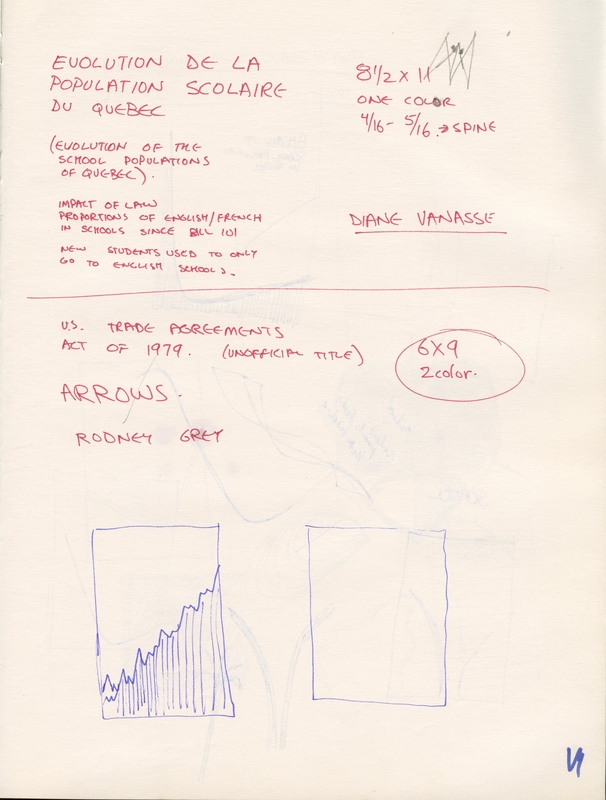 EVOLUTION DE LA
POPULATION SCOLAIRE
DU QUEBEC
8 1/2 X 11
ONE COLOR
4/16 - 5/16 → SPINE
(EVOLUTION OF THE
SCHOOL POPULATIONS
OF QUEBEC).
IMPACT OF LAW
PROPORTIONS OF ENGLISH/FRENCH
IN SCHOOLS SINCE BILL 101
NEW STUDENTS USED TO ONLY
GO TO ENGLISH SCHOOLS.
DIANE VANASSE
U.S. TRADE AGREEMENTS
ACT OF 1979. (UNOFFICIAL TITLE)
6X9
2 color.
ARROWS.
RODNEY GREY